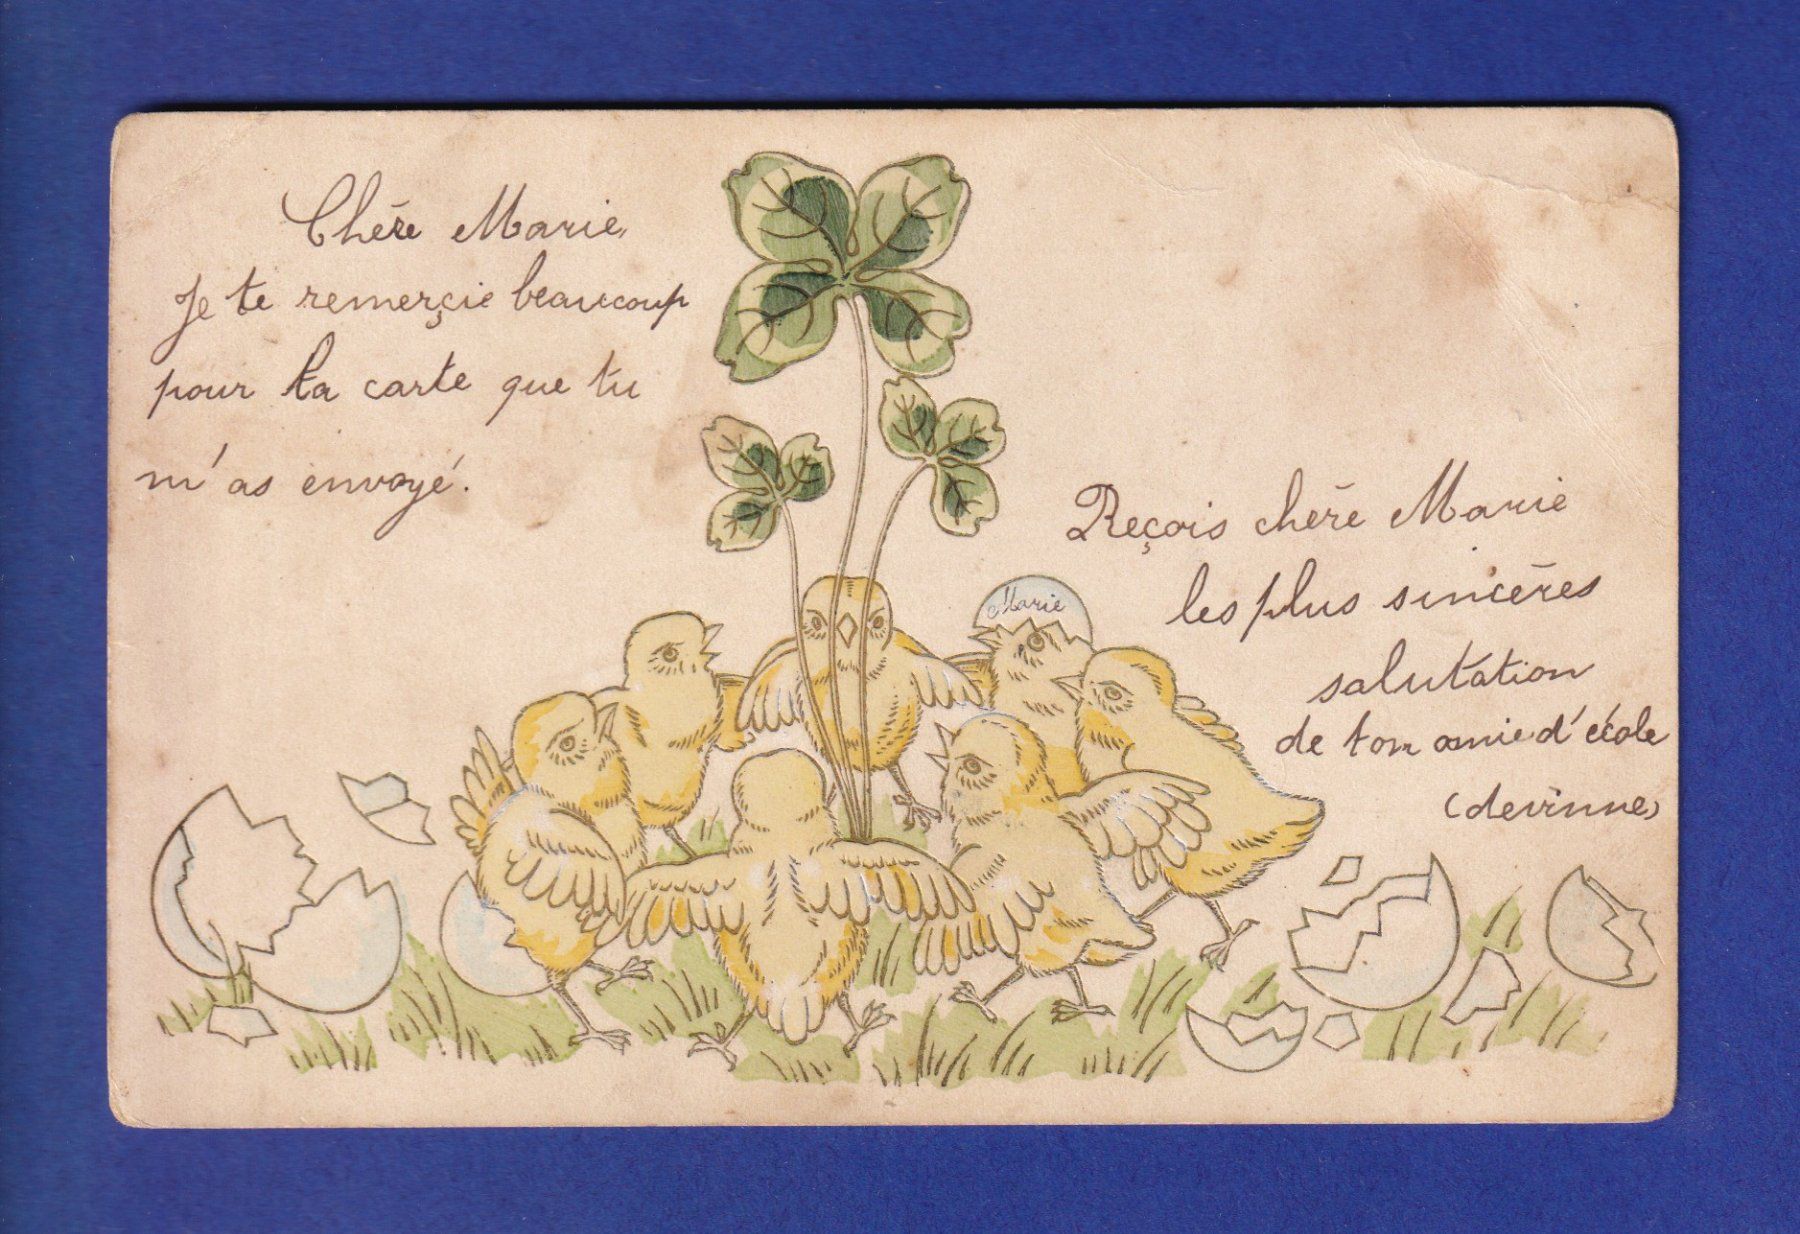 Chère Marie,
Je te remerçie beaucoup
pour ta carte que tu
m'as envoyé.
Marie
Reçois chère Marie
les plus sincères
salutation
de ton amie d'école
(devinne)